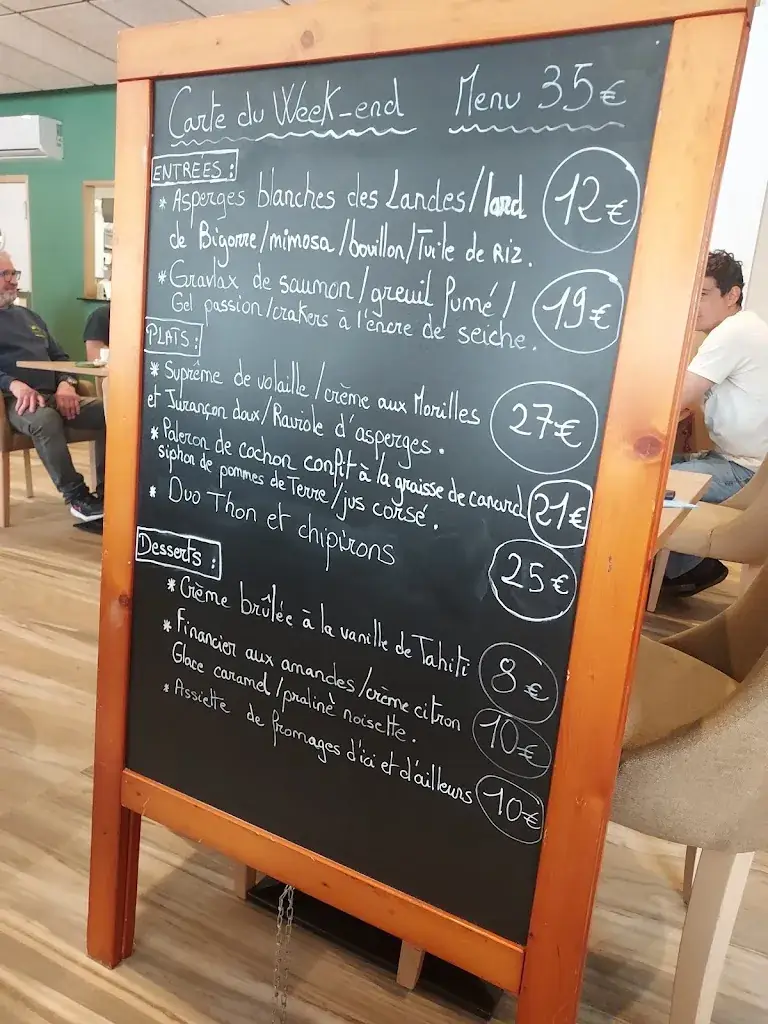 Carte du Week-end Menu 35€
ENTRÉES :
* Asperges blanches des Landes/lard 12€
de Bigorre/mimosa/bouillon/Tuile de Riz.
* Gravlax de saumon/greuil fumé/ 19€
Gel passion/crakers à l'encre de seiche.
PLATS :
* Suprême de volaille/crème aux Morilles 27€
et Jurançon doux/Raviole d'asperges.
* Paleron de cochon confit à la graisse de canard 21€
siphon de pommes de Terre/jus corsé.
* Duo Thon et chipirons 25€
Desserts :
* Crème brûlée à la vanille de Tahiti 8€
* Financier aux amandes/crème citron 10€
Glace caramel/praliné noisette.
* Assiette de fromages d'ici et d'ailleurs 10€